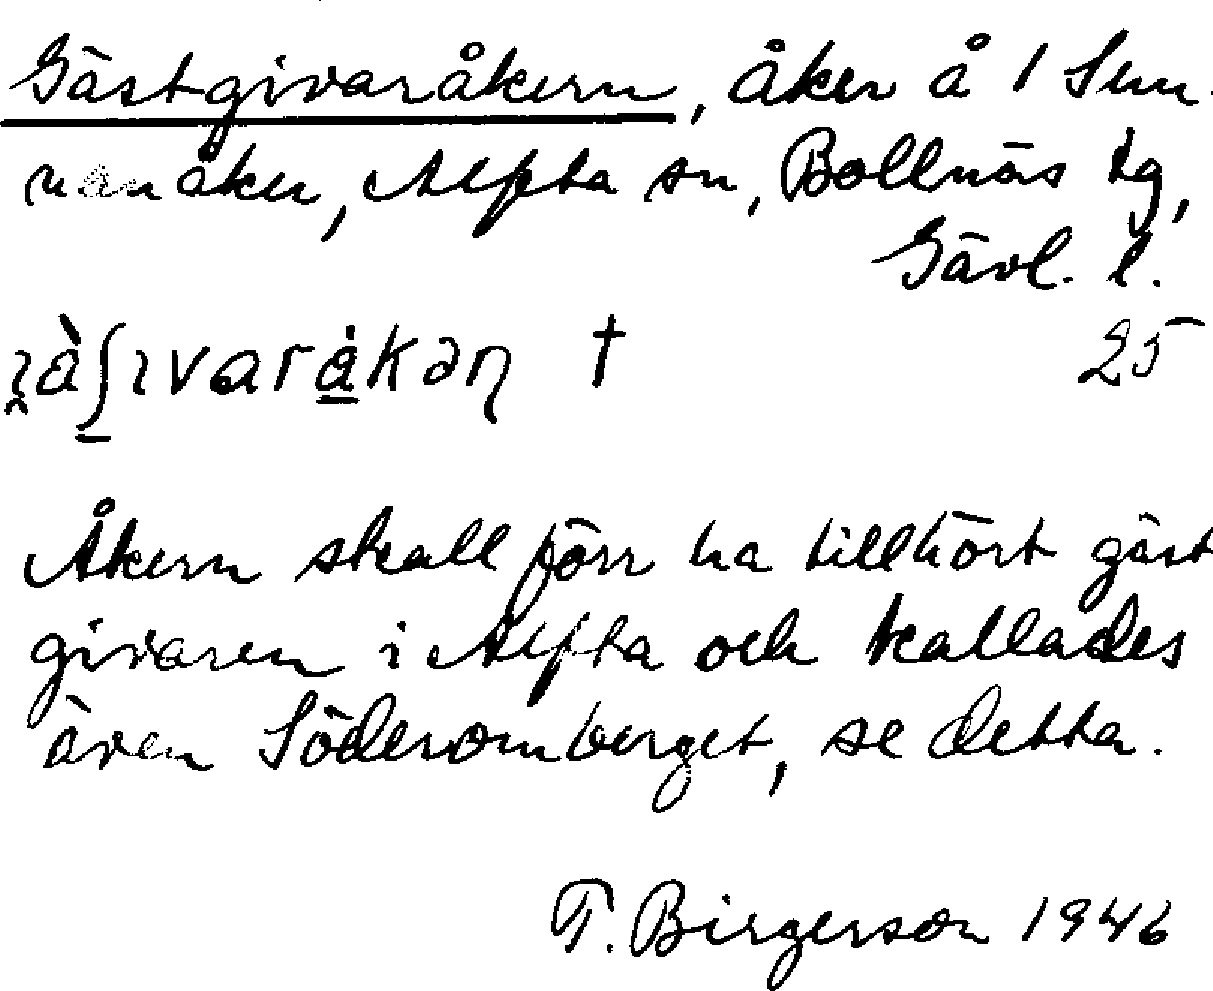 Gästgivaråkern, åker å 1 Sun-
nanåker, Alfta sn, Bollnäs tg,
Gävl. l.
25
Åkern skall förr ha tillhört gäst
givaren i Alfta och kallades
även Söderomberget, se detta.
T. Birgerson 1946